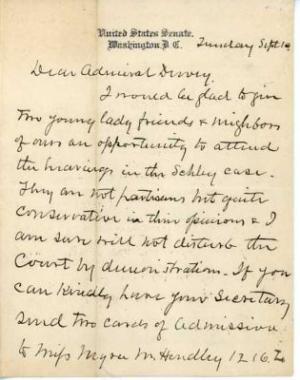 United States Senate,
Washington, D.C.
Tuesday Sept 10
Dear Admiral Dewey,
I would be glad to give
two young lady friends & neighbors
of ours an opportunity to attend
the hearings in the Schley case.
They are not partisans but quite
conservative in their opinions & I
am sure will not disturb the
Court by demonstrations. If you
can kindly have your Secretary
send two cards of admission
to Miss Myra M. Hendley 1216